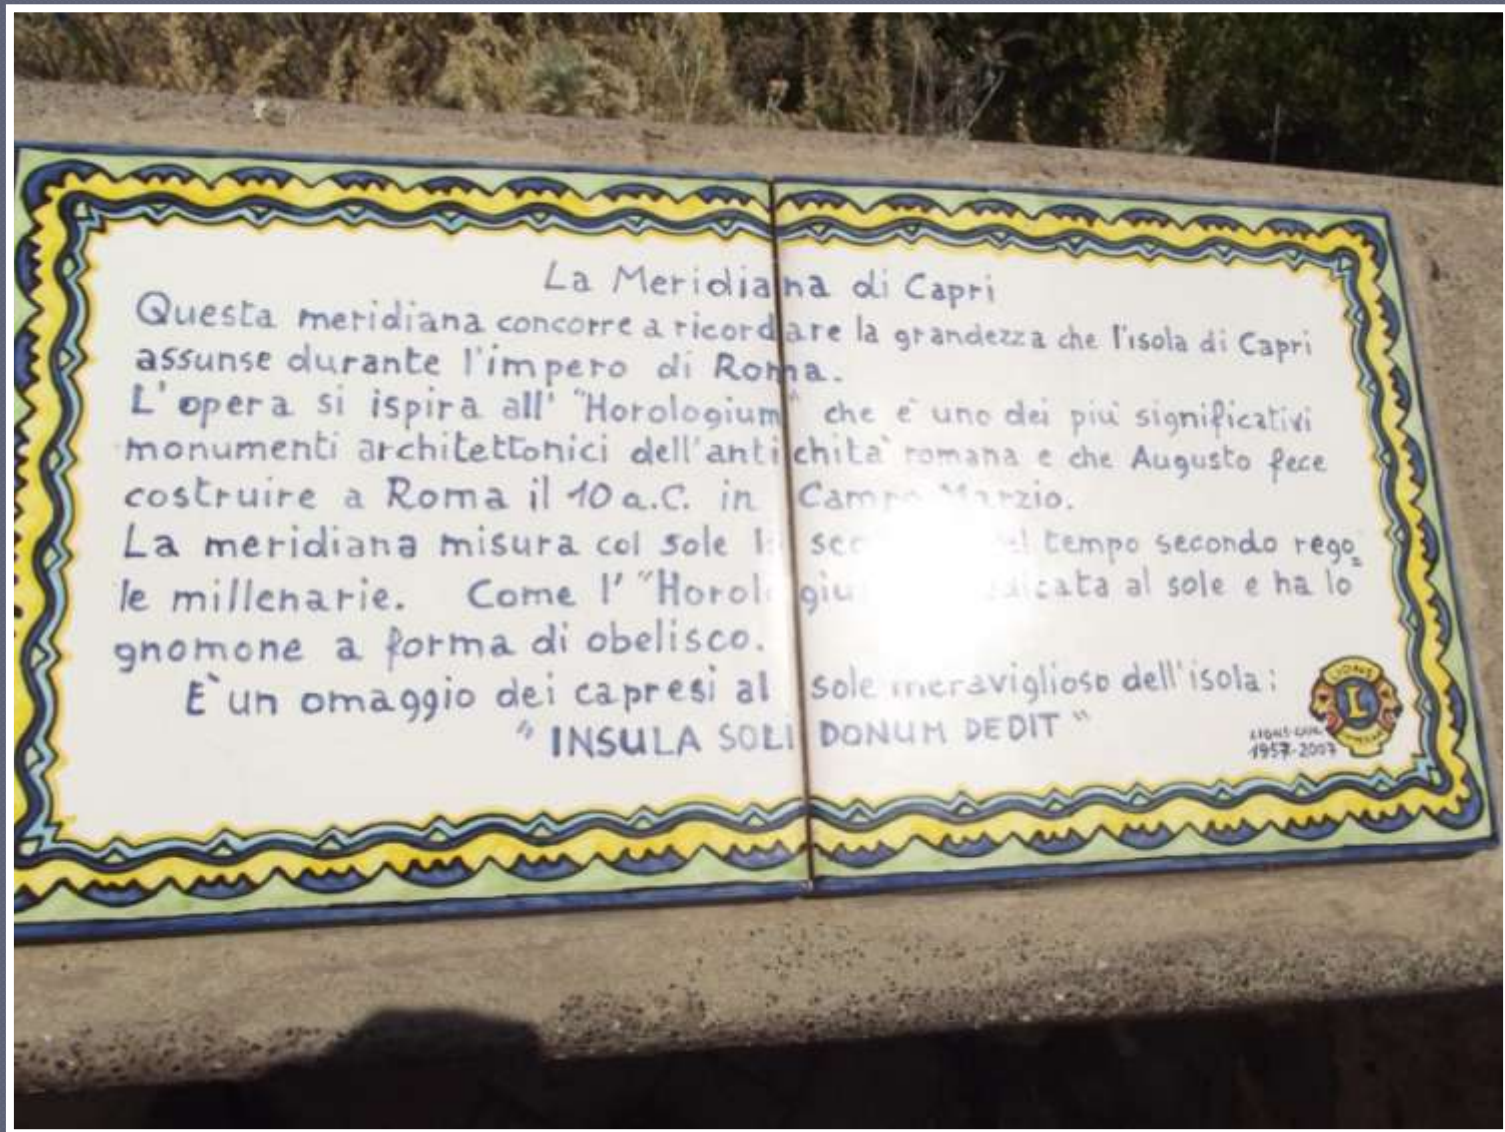 La Meridiana di Capri
Questa meridiana concorre a ricordare la grandezza che l'isola di Capri
assunse durante l'impero di Roma.
L'opera si ispira all' "Horologium" che e' uno dei piu' significativi
monumenti architettonici dell'antichita' romana e che Augusto fece
costruire a Roma il 10 a.C. in Campo Marzio.
La meridiana misura col sole tempo secondo rego=
le millenarie. Come l' "Horologium al sole e ha lo
gnomone a forma di obelisco.
E' un omaggio dei capresi al sole meraviglioso dell'isola:
"INSULA SOLI DONUM DEDIT"
LIONS
L
1957-2007